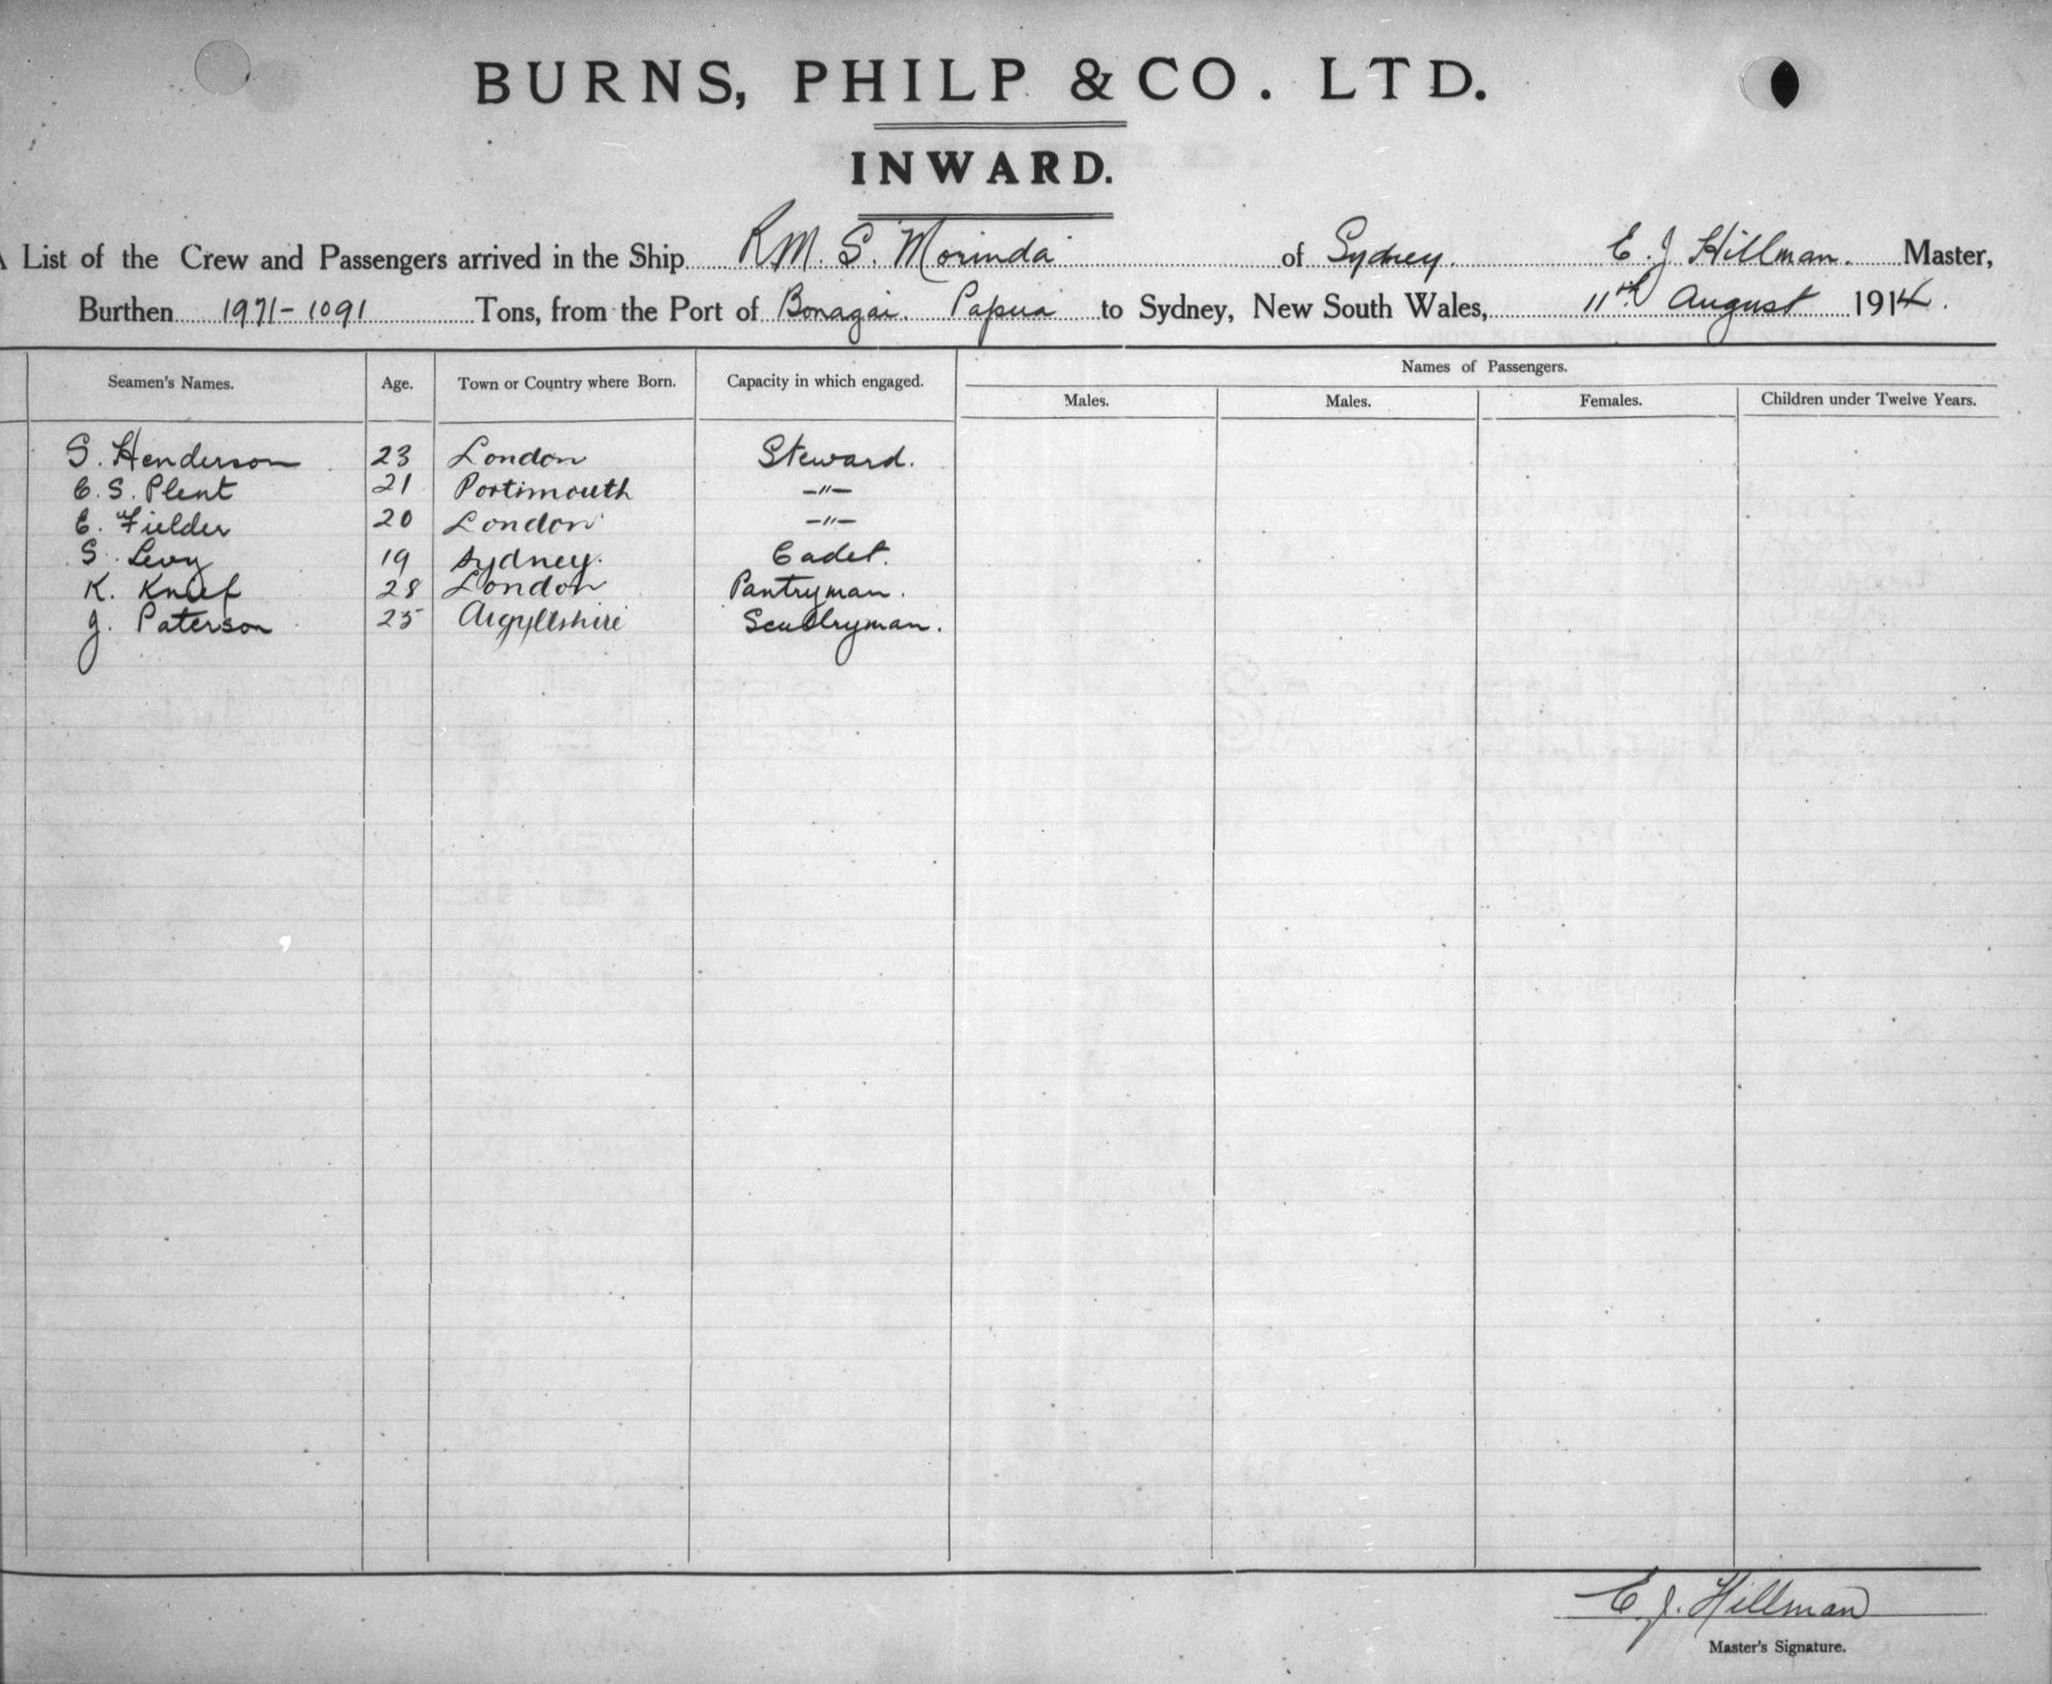 BURNS, PHILP & CO. LTD.
INWARD.
A List of the Crew and Passengers arrived in the Ship R.M.S. Morinda of Sydney. E. J. Hillman. Master,
Burthen 1971-1091 Tons, from the Port of Bonagai. Papua to Sydney, New South Wales, 11th August 1914.
Names of Passengers.
Seamen's Names. Age. Town or Country where Born. Capacity in which engaged. Males. Males. Females. Children under Twelve Years.
S. Henderson 23 London Steward.
C. S. Plent 21 Portsmouth -"-
E. Fielder 20 London -"-
S. Levy 19 Sydney. Cadet.
K. Knief 28 London Pantryman.
J. Paterson 25 Argyllshire Scullryman.
E. J. Hillman
Master's Signature.